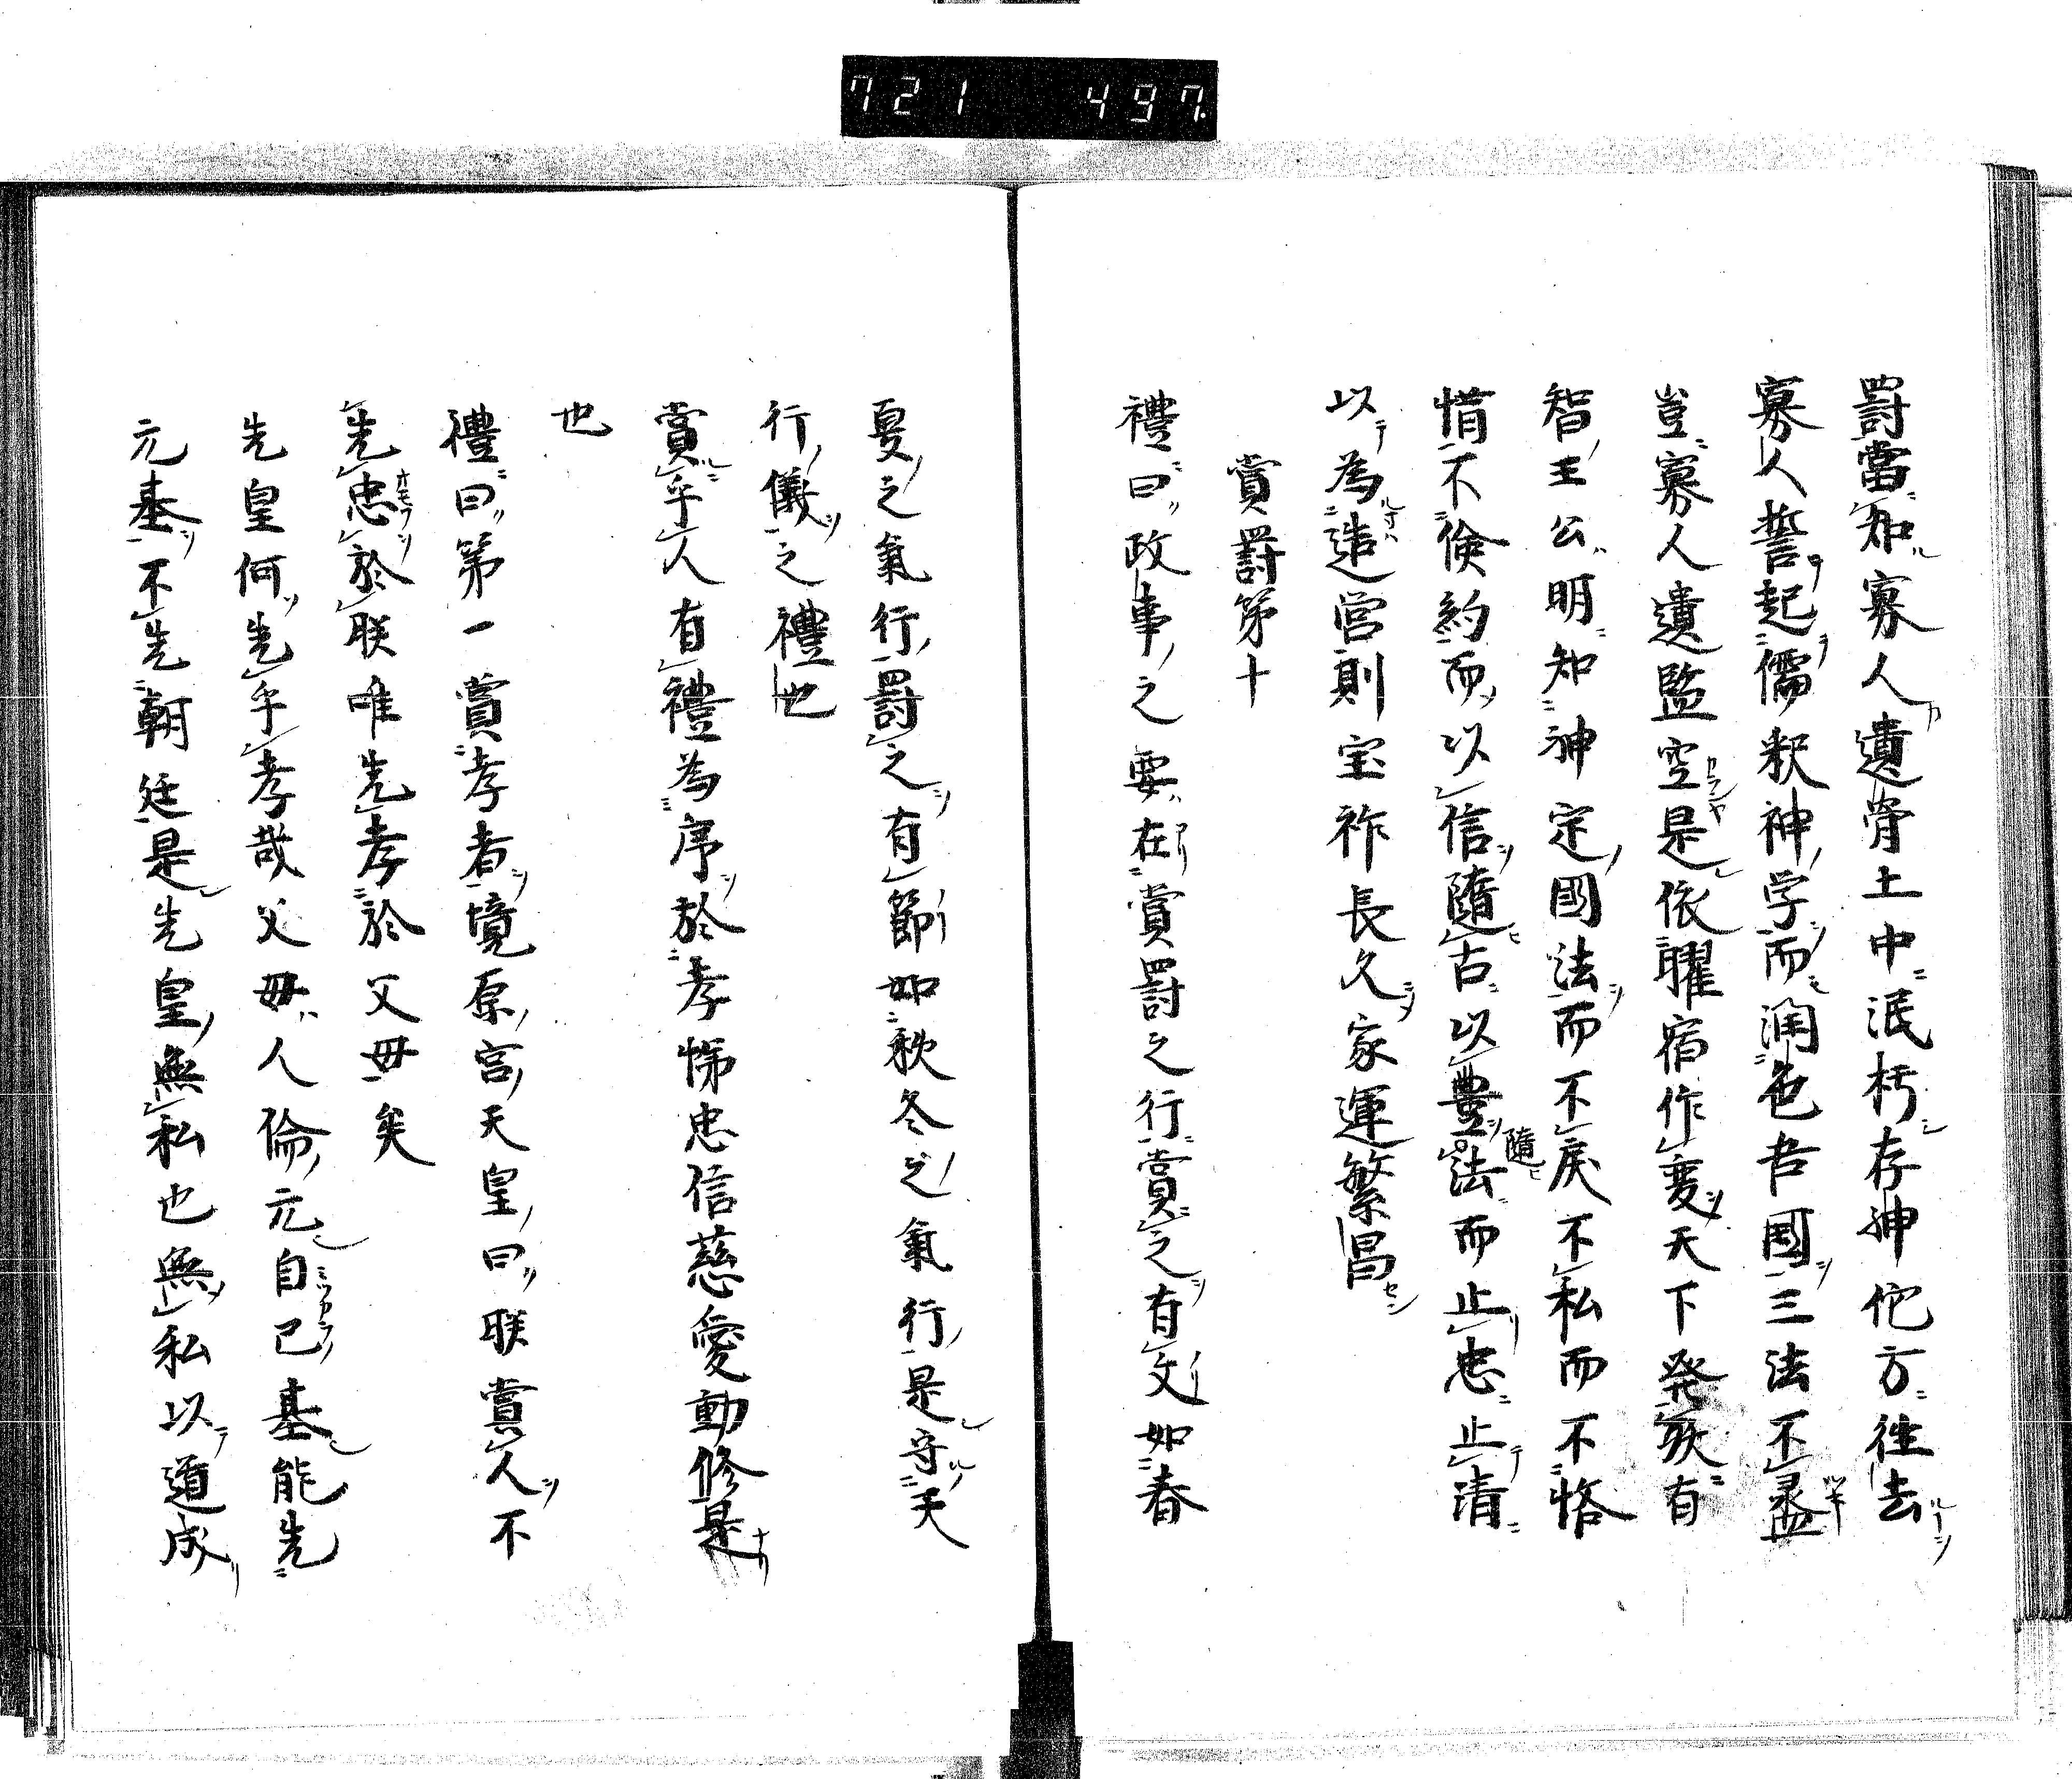 721 497.
罸當知寡人遺骨土中泯朽存神佗方徃去
寡人誓起儒釈神学而潤色吾國三法不盡
豈寡人遺監空是依曜宿作変天下発災有
智王公明知神定國法而不戻不私而不悋
惜不倹約而以信隨古以豊隨法而止忠止清
以為造営則宝祚長久家運繁昌
賞罸第十
禮曰政事之要在賞罸之行賞之有文如春
夏之氣行罸之有節如秋冬之氣行是守天
行儀之禮也
賞乎人有禮為序於孝悌忠信慈愛動修是
也
禮曰第一賞孝者境原宮天皇曰朕賞人不
先忠於朕唯先孝於父毋矣
先皇何先乎孝哉父毋人倫元自己基能先
元基不先朝廷是先皇無私也無私以道成